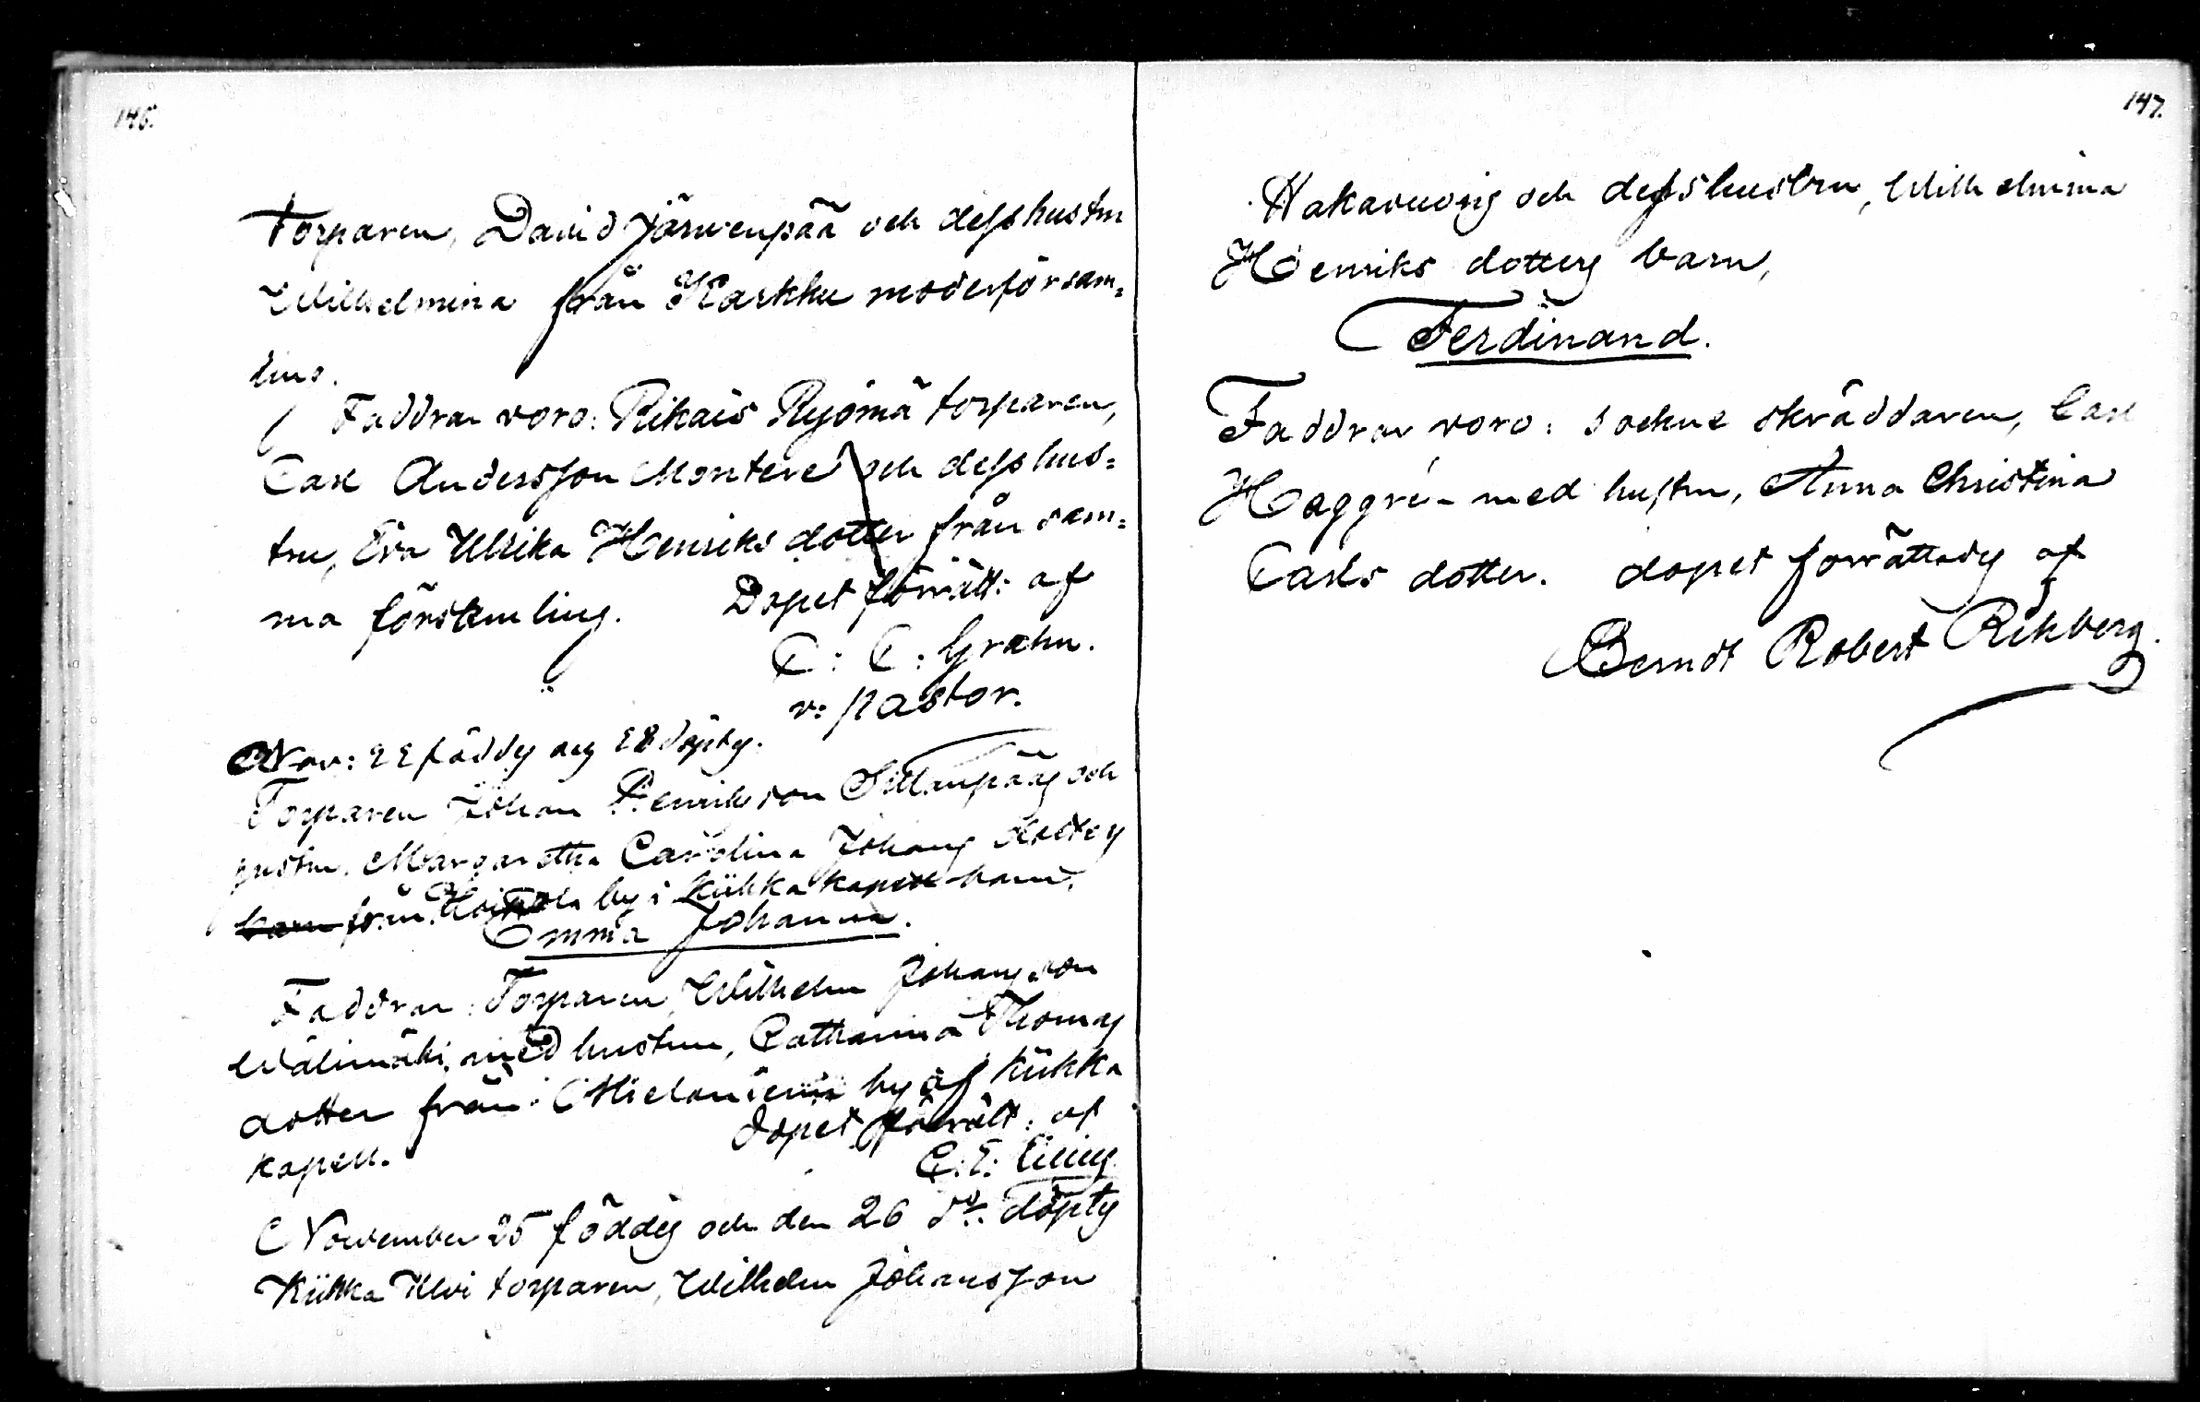 146.
Torparen, David Järwenpää och dess hustru
Wilhelmina från Karkku moderförsam=
ling.
Faddrar voro: Rikais Ryömä torparen,
Carl Andersson Montere och dess hus=
tru, Eva Ulrika Henriks dotter från sam=
ma församling. Dopet förrätt: af
C: C: Grahn.
v: pastor.
Nov: 22 föddes och 28 döptes.
Torparen Johan Henriksson Sillanpääs och
hustru, Margaretha Carolina Johans dotters
barn från by i Kiikka kapell barn,
Emma Johanna.
Faddrar: Torparen, Wilhelm Johansson
Wälimäki, med hustru, Catharina Thomas
dotter från by af Kiikka
kapell. dopet förrätt: af
C: E:
November 25 föddes och den 26 do: döptes
Kiikka Ulvi torparen, Wilhelm Johansson
147.
och dess hustru, Wilhelmina
Henriks dotters barn,
Ferdinand.
Faddrar voro: sockne skräddaren, Carl
Haggré- med hustru, Anna Christina
Carls dotter. dopet förrättades af
Berndt Robert Rikberg.